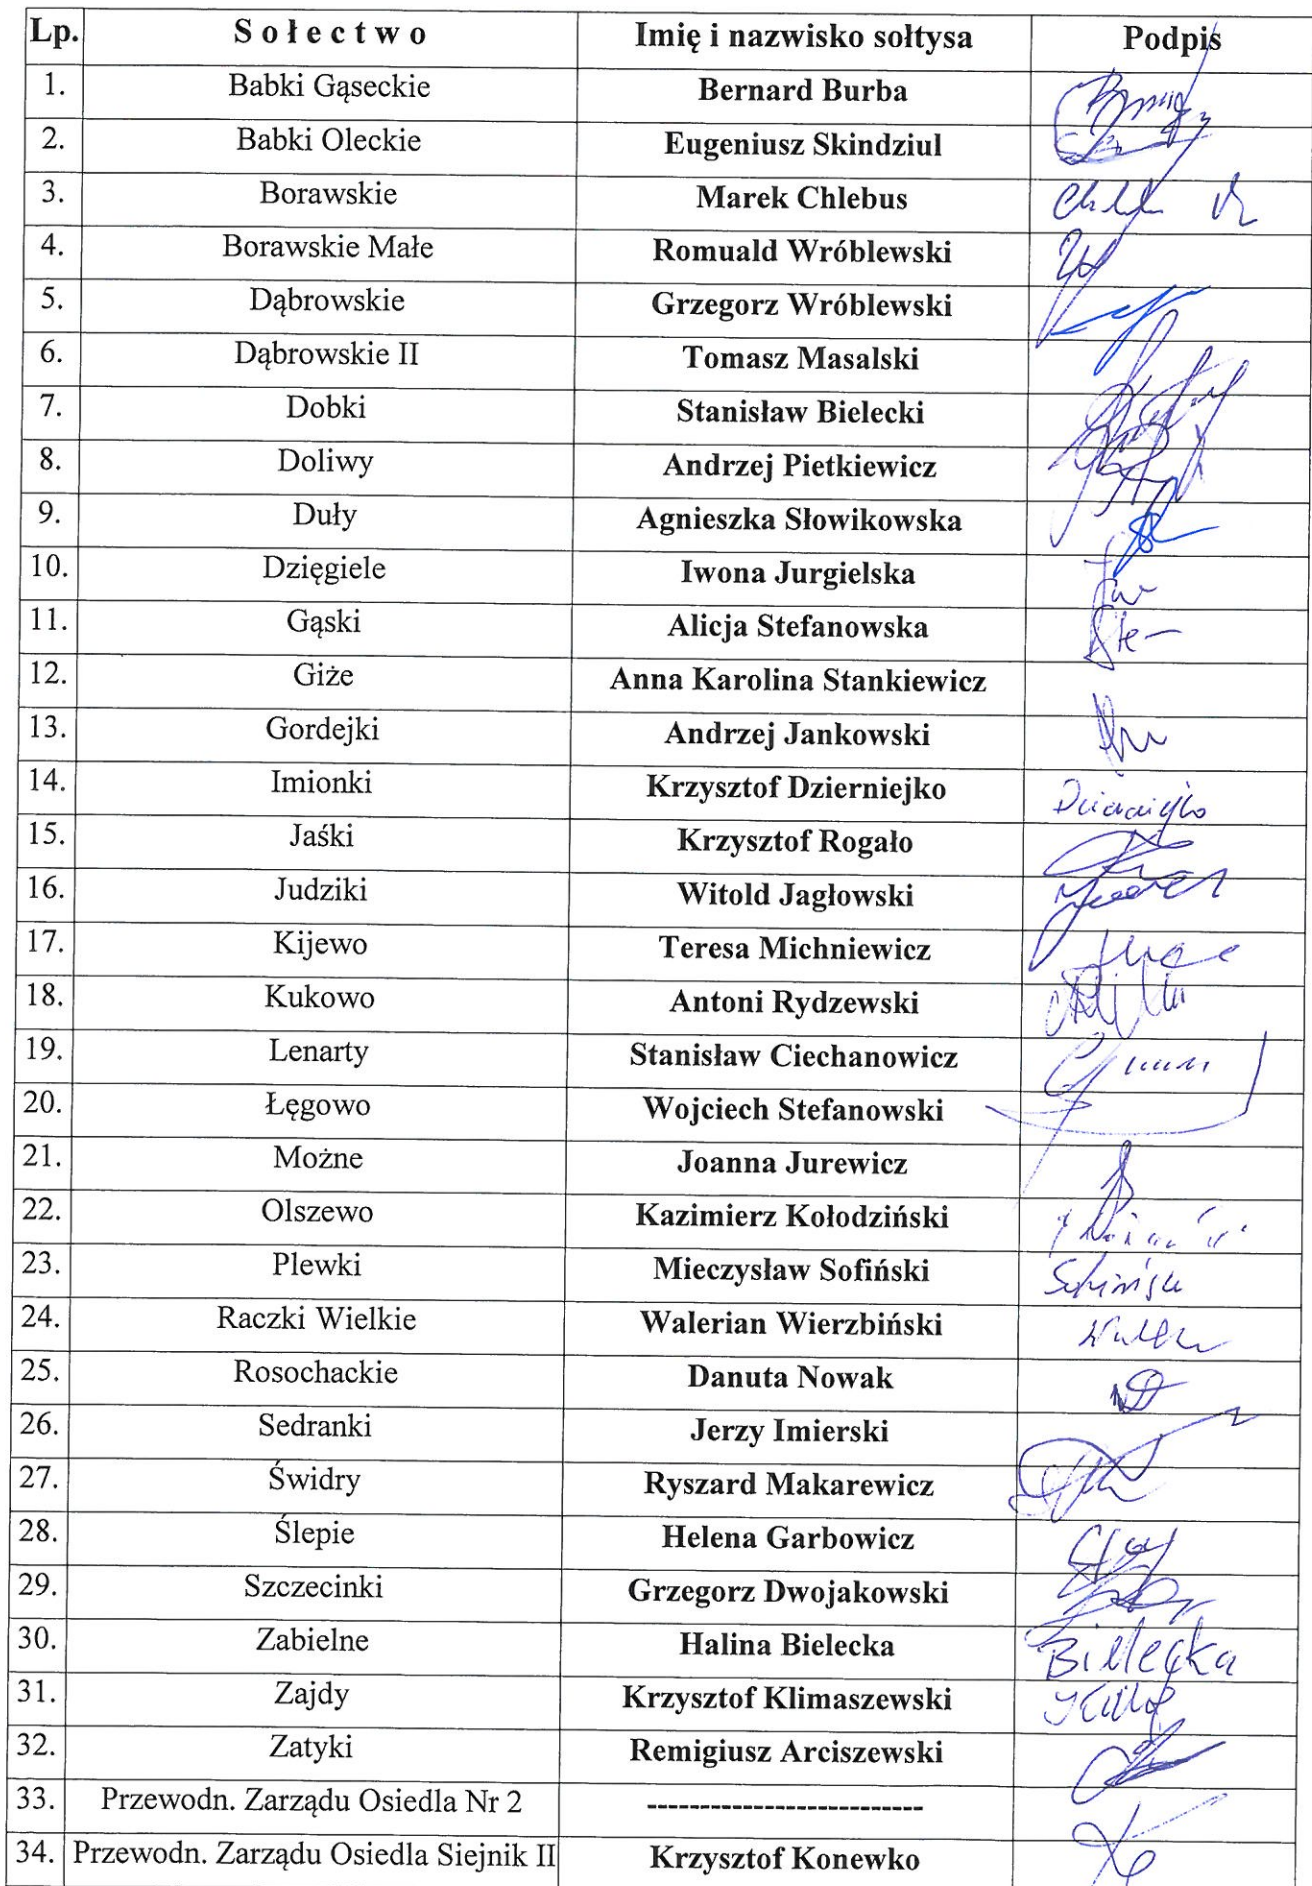 Lp. Sołectwo Imię i nazwisko sołtysa Podpis
1. Babki Gąseckie Bernard Burba
2. Babki Oleckie Eugeniusz Skindziul
3. Borawskie Marek Chlebus
4. Borawskie Małe Romuald Wróblewski
5. Dąbrowskie Grzegorz Wróblewski
6. Dąbrowskie II Tomasz Masalski
7. Dobki Stanisław Bielecki
8. Doliwy Andrzej Pietkiewicz
9. Duły Agnieszka Słowikowska
10. Dzięgiele Iwona Jurgielska
11. Gąski Alicja Stefanowska
12. Giże Anna Karolina Stankiewicz
13. Gordejki Andrzej Jankowski
14. Imionki Krzysztof Dzierniejko
15. Jaśki Krzysztof Rogało
16. Judziki Witold Jagłowski
17. Kijewo Teresa Michniewicz
18. Kukowo Antoni Rydzewski
19. Lenarty Stanisław Ciechanowicz
20. Łęgowo Wojciech Stefanowski
21. Możne Joanna Jurewicz
22. Olszewo Kazimierz Kołodziński
23. Plewki Mieczysław Sofiński
24. Raczki Wielkie Walerian Wierzbiński
25. Rosochackie Danuta Nowak
26. Sedranki Jerzy Imierski
27. Świdry Ryszard Makarewicz
28. Ślepie Helena Garbowicz
29. Szczecinki Grzegorz Dwojakowski
30. Zabielne Halina Bielecka Bielecka
31. Zajdy Krzysztof Klimaszewski
32. Zatyki Remigiusz Arciszewski
33. Przewodn. Zarządu Osiedla Nr 2 --------------------------
34. Przewodn. Zarządu Osiedla Siejnik II Krzysztof Konewko